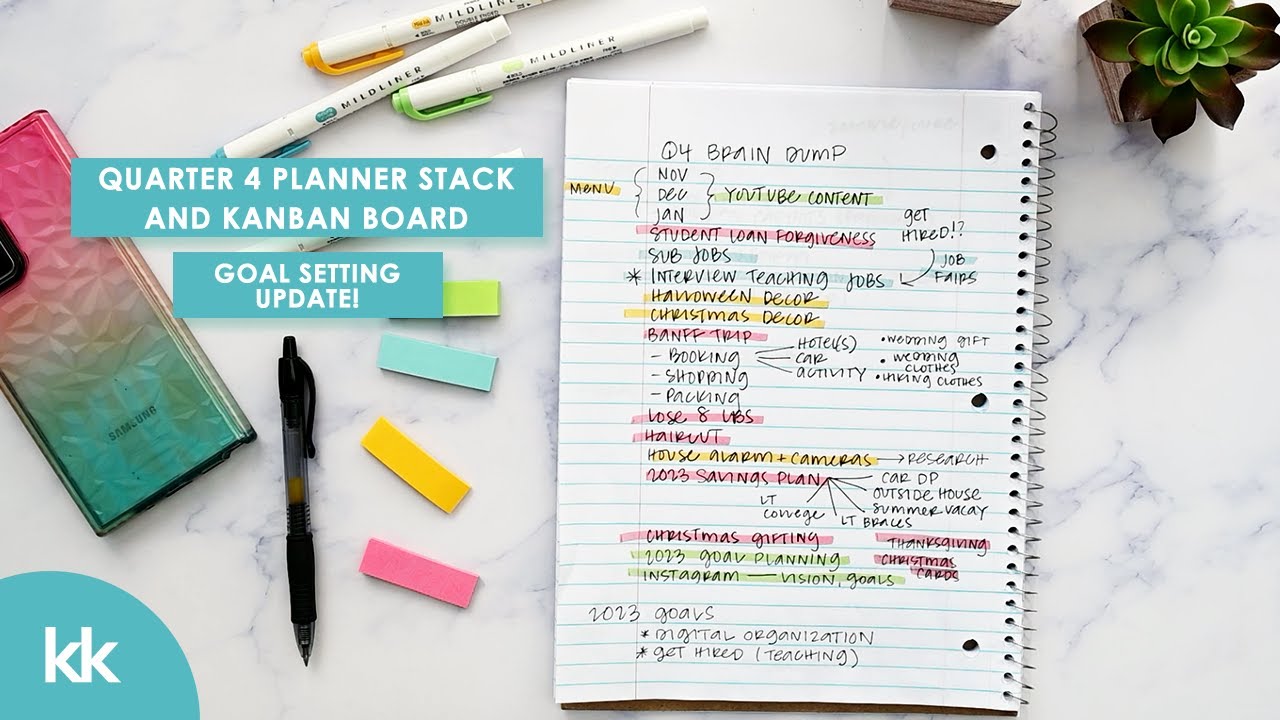 MILDLINER
DOUBLE ENDED
MILDLINER
MILDLINER
QUARTER 4 PLANNER STACK
AND KANBAN BOARD
GOAL SETTING
UPDATE!
SAMSUNG
kk
Q4 BRAIN DUMP
MENU
NOV
DEC
JAN
YOUTUBE CONTENT
STUDENT LOAN FORGIVENESS
GET
HIRED!?
SUB JOBS
JOB
FAIRS
* INTERVIEW TEACHING JOBS
HALLOWEEN DECOR
CHRISTMAS DECOR
BANFF TRIP
- BOOKING
HOTEL(S)
CAR
ACTIVITY
• WEDDING GIFT
• WEDDING
CLOTHES
• HIKING CLOTHES
- SHOPPING
- PACKING
LOSE 8 LBS
HAIRCUT
HOUSE ALARM + CAMERAS → RESEARCH
2023 SAVINGS PLAN
CAR DP
OUTSIDE HOUSE
SUMMER VACAY
LT BRACES
LT
COLLEGE
CHRISTMAS GIFTING
THANKSGIVING
2023 GOAL PLANNING
CHRISTMAS
CARDS
INSTAGRAM — VISION, GOALS
2023 GOALS
* DIGITAL ORGANIZATION
* GET HIRED (TEACHING)